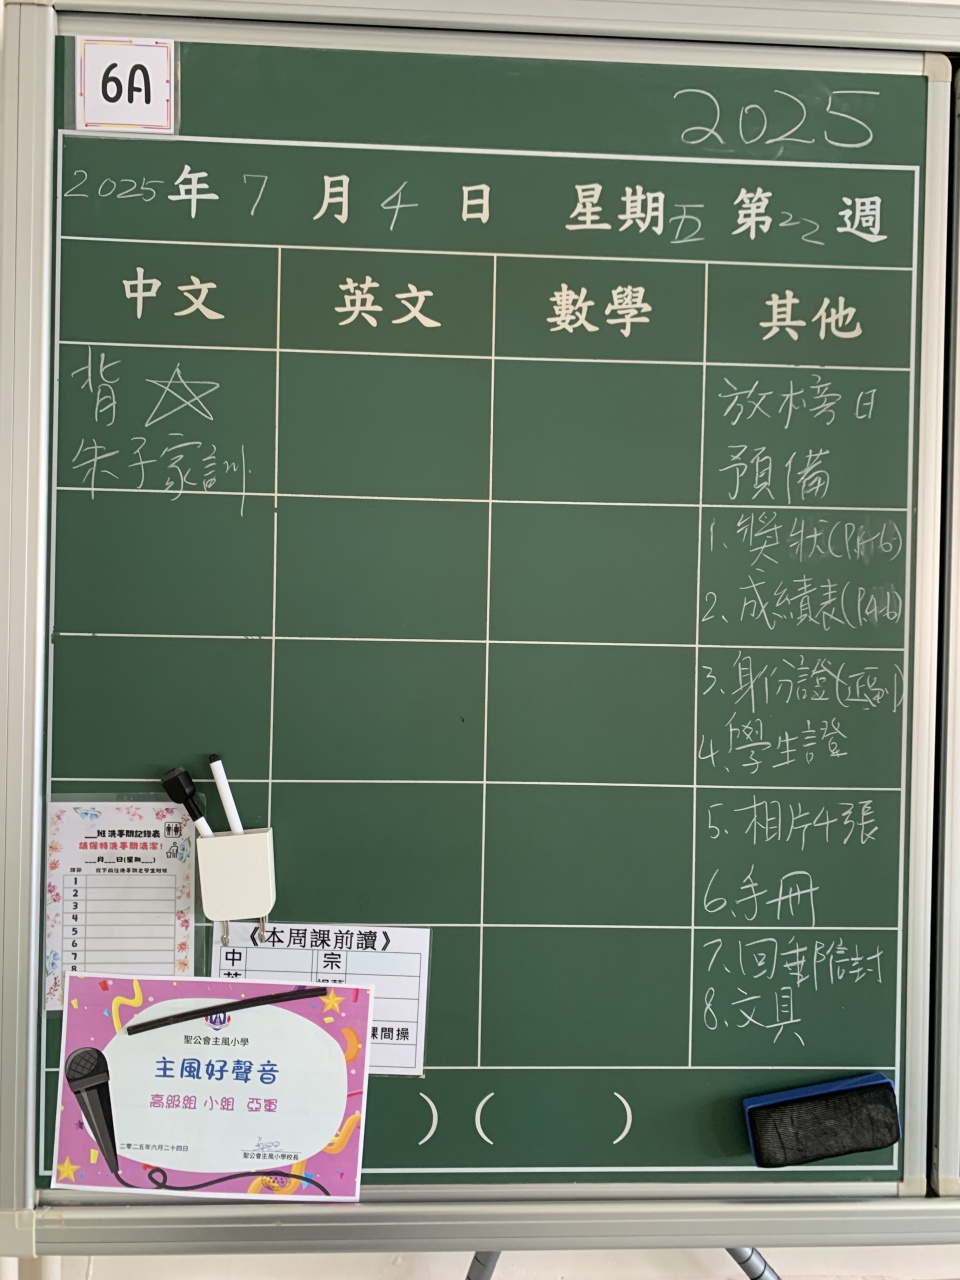 6A
2025
2025年7月4日 星期五 第22週
中文 英文 數學 其他
背☆
朱子家訓
放榜日
預備
1. 獎狀(P.4-6)
2. 成績表(P.4-6)
3. 身份證
4. 學生證
5. 相片4張
6. 手冊
7. 回郵信封
8. 文具
___班洗手間記錄表
請保持洗手間清潔!
___月___日(星期___)
1
2
3
4
5
6
7
8
《本周課前讀》
中 宗
課間操
聖公會主風小學
主風好聲音
高級組 小組 亞軍
二零二五年六月二十四日
聖公會主風小學校長
) ( )